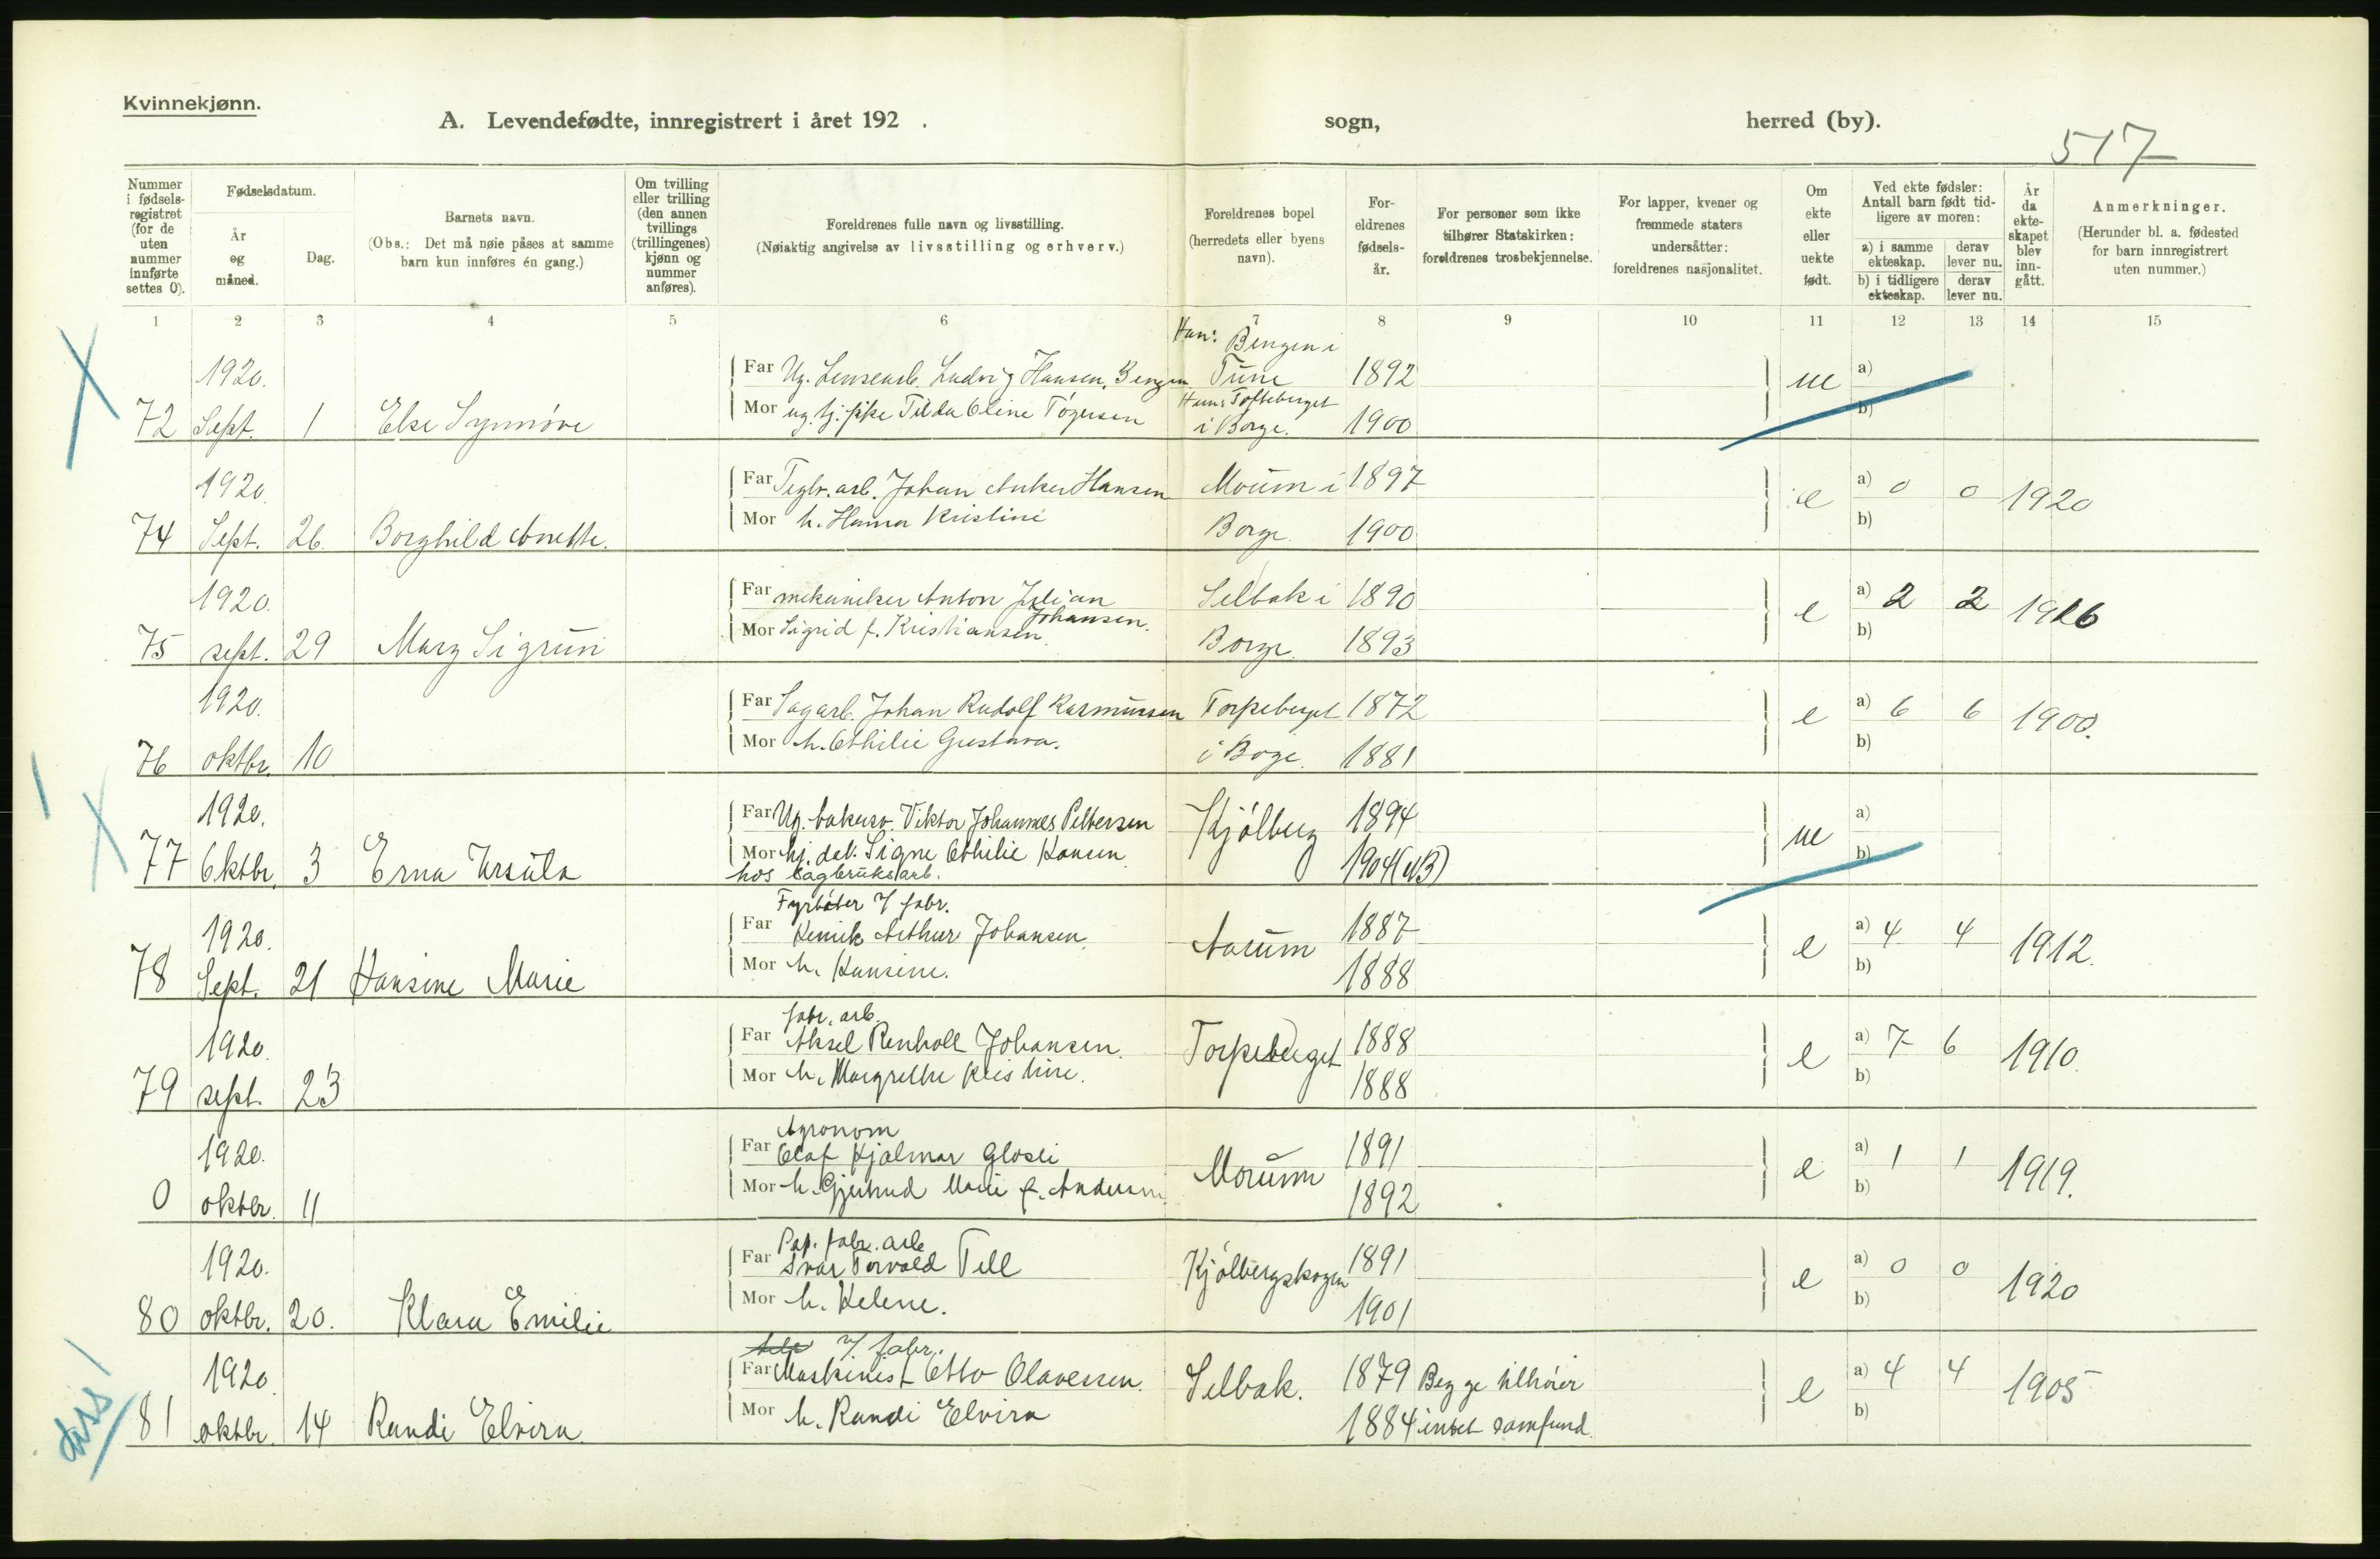 Kvinnekjønn.
A. Levendefødte, innregistrert i året 192 . sogn, herred (by).
517
Nummer i fødsels-registret (for de uten nummer innførte settes 0).
Fødselsdatum.
År og måned.
Dag.
Barnets navn.
(Obs.: Det må nøie påses at samme barn kun innføres én gang.)
Om tvilling eller trilling (den annen tvillings (trillingenes) kjønn og nummer anføres).
Foreldrenes fulle navn og livsstilling.
(Nøiaktig angivelse av livsstilling og erhverv.)
Foreldrenes bopel (herredets eller byens navn).
For-eldrenes fødsels-år.
For personer som ikke tilhører Statskirken: foreldrenes trosbekjennelse.
For lapper, kvener og fremmede staters undersåtter: foreldrenes nasjonalitet.
Om ekte eller uekte født.
Ved ekte fødsler: Antall barn født tid-ligere av moren:
a) i samme ekteskap.
derav lever nu.
b) i tidligere ekteskap.
derav lever nu.
År da ekte-skapet blev inn-gått.
Anmerkninger.
(Herunder bl. a. fødested for barn innregistrert uten nummer.)
1 2 3 4 5 6 7 8 9 10 11 12 13 14 15
Han: Bengen i
1920. Far Ludvig Hansen, Bengen Tune 1892 ue a)
72 Sept. 1 Else Synnøve Mor ug. tj. pike Tilda Oline Tøgersen Hun: Tofteberget i Borge. 1900 b)
1920 Far Teglv. arb. Johan Anker Hansen Moum i 1897 e a) 0 0 1920
74 Sept. 26. Borghild Anette. Mor h. Hanna Kristine Borge. 1900 b)
1920. Far mekaniker Anton Julian Johansen. Selbak i 1890 e a) 2 2 1916
75 sept. 29 Mary Sigrun Mor Sigrid f. Kristiansen. Borge. 1893 b)
1920. Far Sagarb. Johan Rudolf Rasmussen Torpeberget 1872 e a) 6 6 1900.
76 oktbr. 10 Mor h. Othilie Gustava. i Boge. 1881 b)
1920. Far Ug. bakersv. Viktor Johannes Pettersen Kjølberg 1894 ue a)
77 Oktbr. 3 Erna Ursula Mor hj. dat. Signe Othilie Hansen 1904 b)
hos sagbruksarb.
Fyrbøter v/ fabr.
1920. Far Henrik Arthur Johansen. Aarum 1887 e a) 4 4 1912.
78 Sept. 21 Hansine Marie Mor h. Hansine. 1888 b)
fabr. arb.
1920. Far Aksel Renholt Johansen. Torpeberget 1888 e a) 7 6 1910.
79 sept. 23 Mor h. Margrethe Kristine. 1888 b)
Agronom
1920. Far Olaf Hjalmar Glosli Morum 1891 e a) 1 1 1919.
0 oktbr. 11 Mor h. Gjertrud Marie f. Andersen 1892 b)
Pap. fabr. arb
1920. Far Ivar Torvald Tell Kjølbergskogen 1891 e a) 0 0 1920
80 oktbr. 20. Klara Emilie Mor h. Helene. 1901 b)
v/ fabr.
1920 Far Maskinist Otto Olavessen. Selbak. 1879 Begge tilhører e a) 4 4 1905
81 oktbr. 14 Randi Elvira. Mor h. Randi Elvira 1884 intet samfund. b)
diss